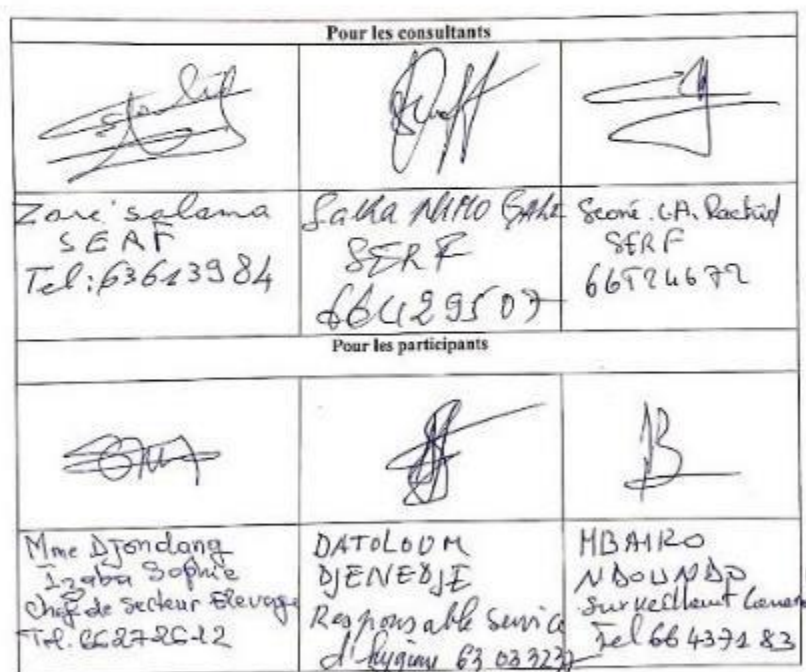 Pour les consultants
Zaré salama
SEAF
Tel: 63613984
Salha
SERF
66429507
Seoné . Rachid
SERF
66524672
Pour les participants
Mme Djondang
Izaba Sophie
Chef de Secteur Elevage
Tel. 66272612
DATOLOUM
DJENEDJE
Responsable Service
d'hygiène 63 03 3237
MBAIRO
NDOUNDO
Surveillant
Tel 66 4371 83